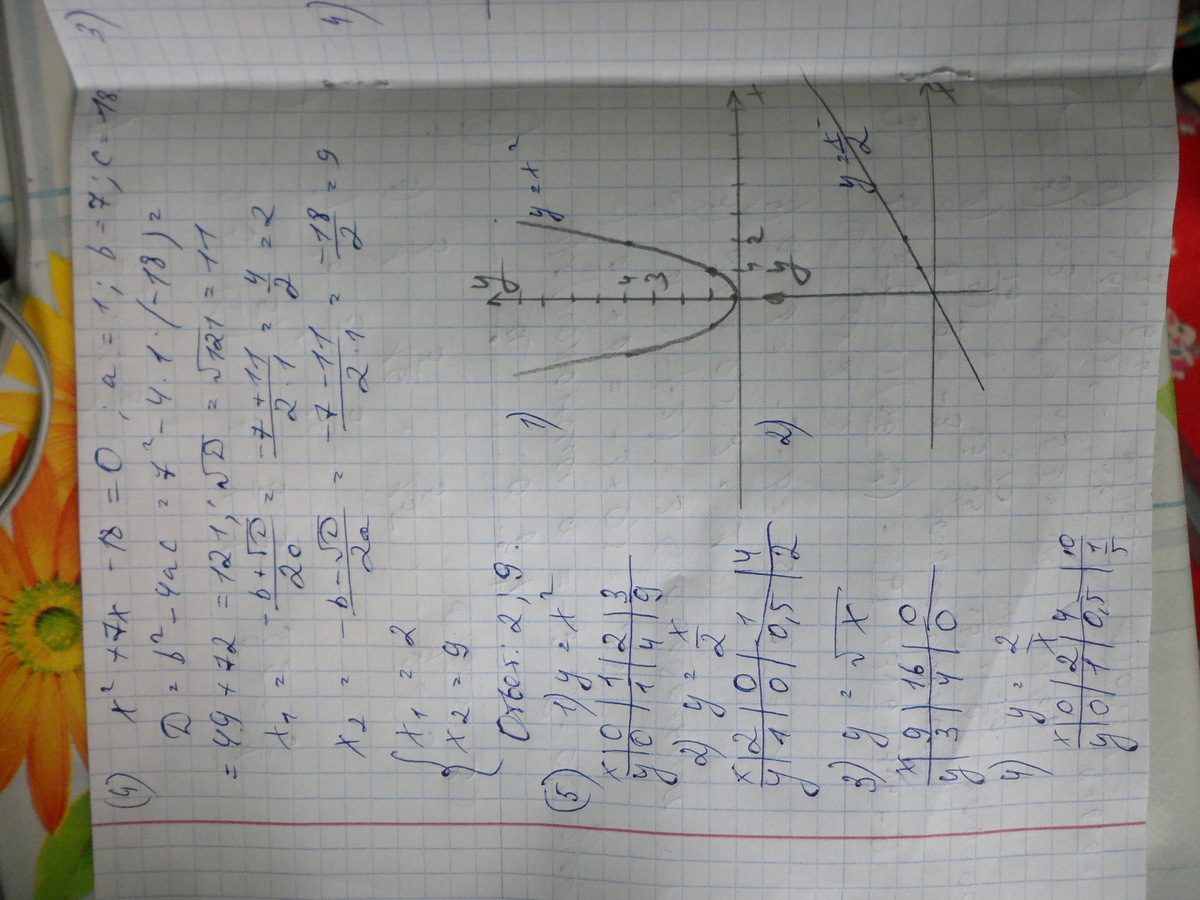 (4) x² + 7x - 18 = 0 ; a = 1 ; b = 7 ; c = -18
D = b² - 4ac = 7² - 4 · 1 · (-18) =
= 49 + 72 = 121 ; √D = √121 = 11
x₁ = -b+√D/2a = -7+11/2·1 = 4/2 = 2
x₂ = -b-√D/2a = -7-11/2·1 = -18/2 = 9
{ x₁ = 2
x₂ = 9
Ответ: 2, 9.
(5) 1) y = x²
x | 0 | 1 | 2 | 3
y | 0 | 1 | 4 | 9
2) y = x/2
x | 2 | 0 | 1 | 4
y | 1 | 0 | 0,5 | 2
3) y = √x
x | 9 | 16 | 0
y | 3 | 4 | 0
4) y = 2/x
x | 0 | 2 | 4 | 10
y | 0 | 1 | 0,5 | 1/5
1)
y
y = x²
4
3
1 2
x
2)
y
y = x/2
x
3)
4)